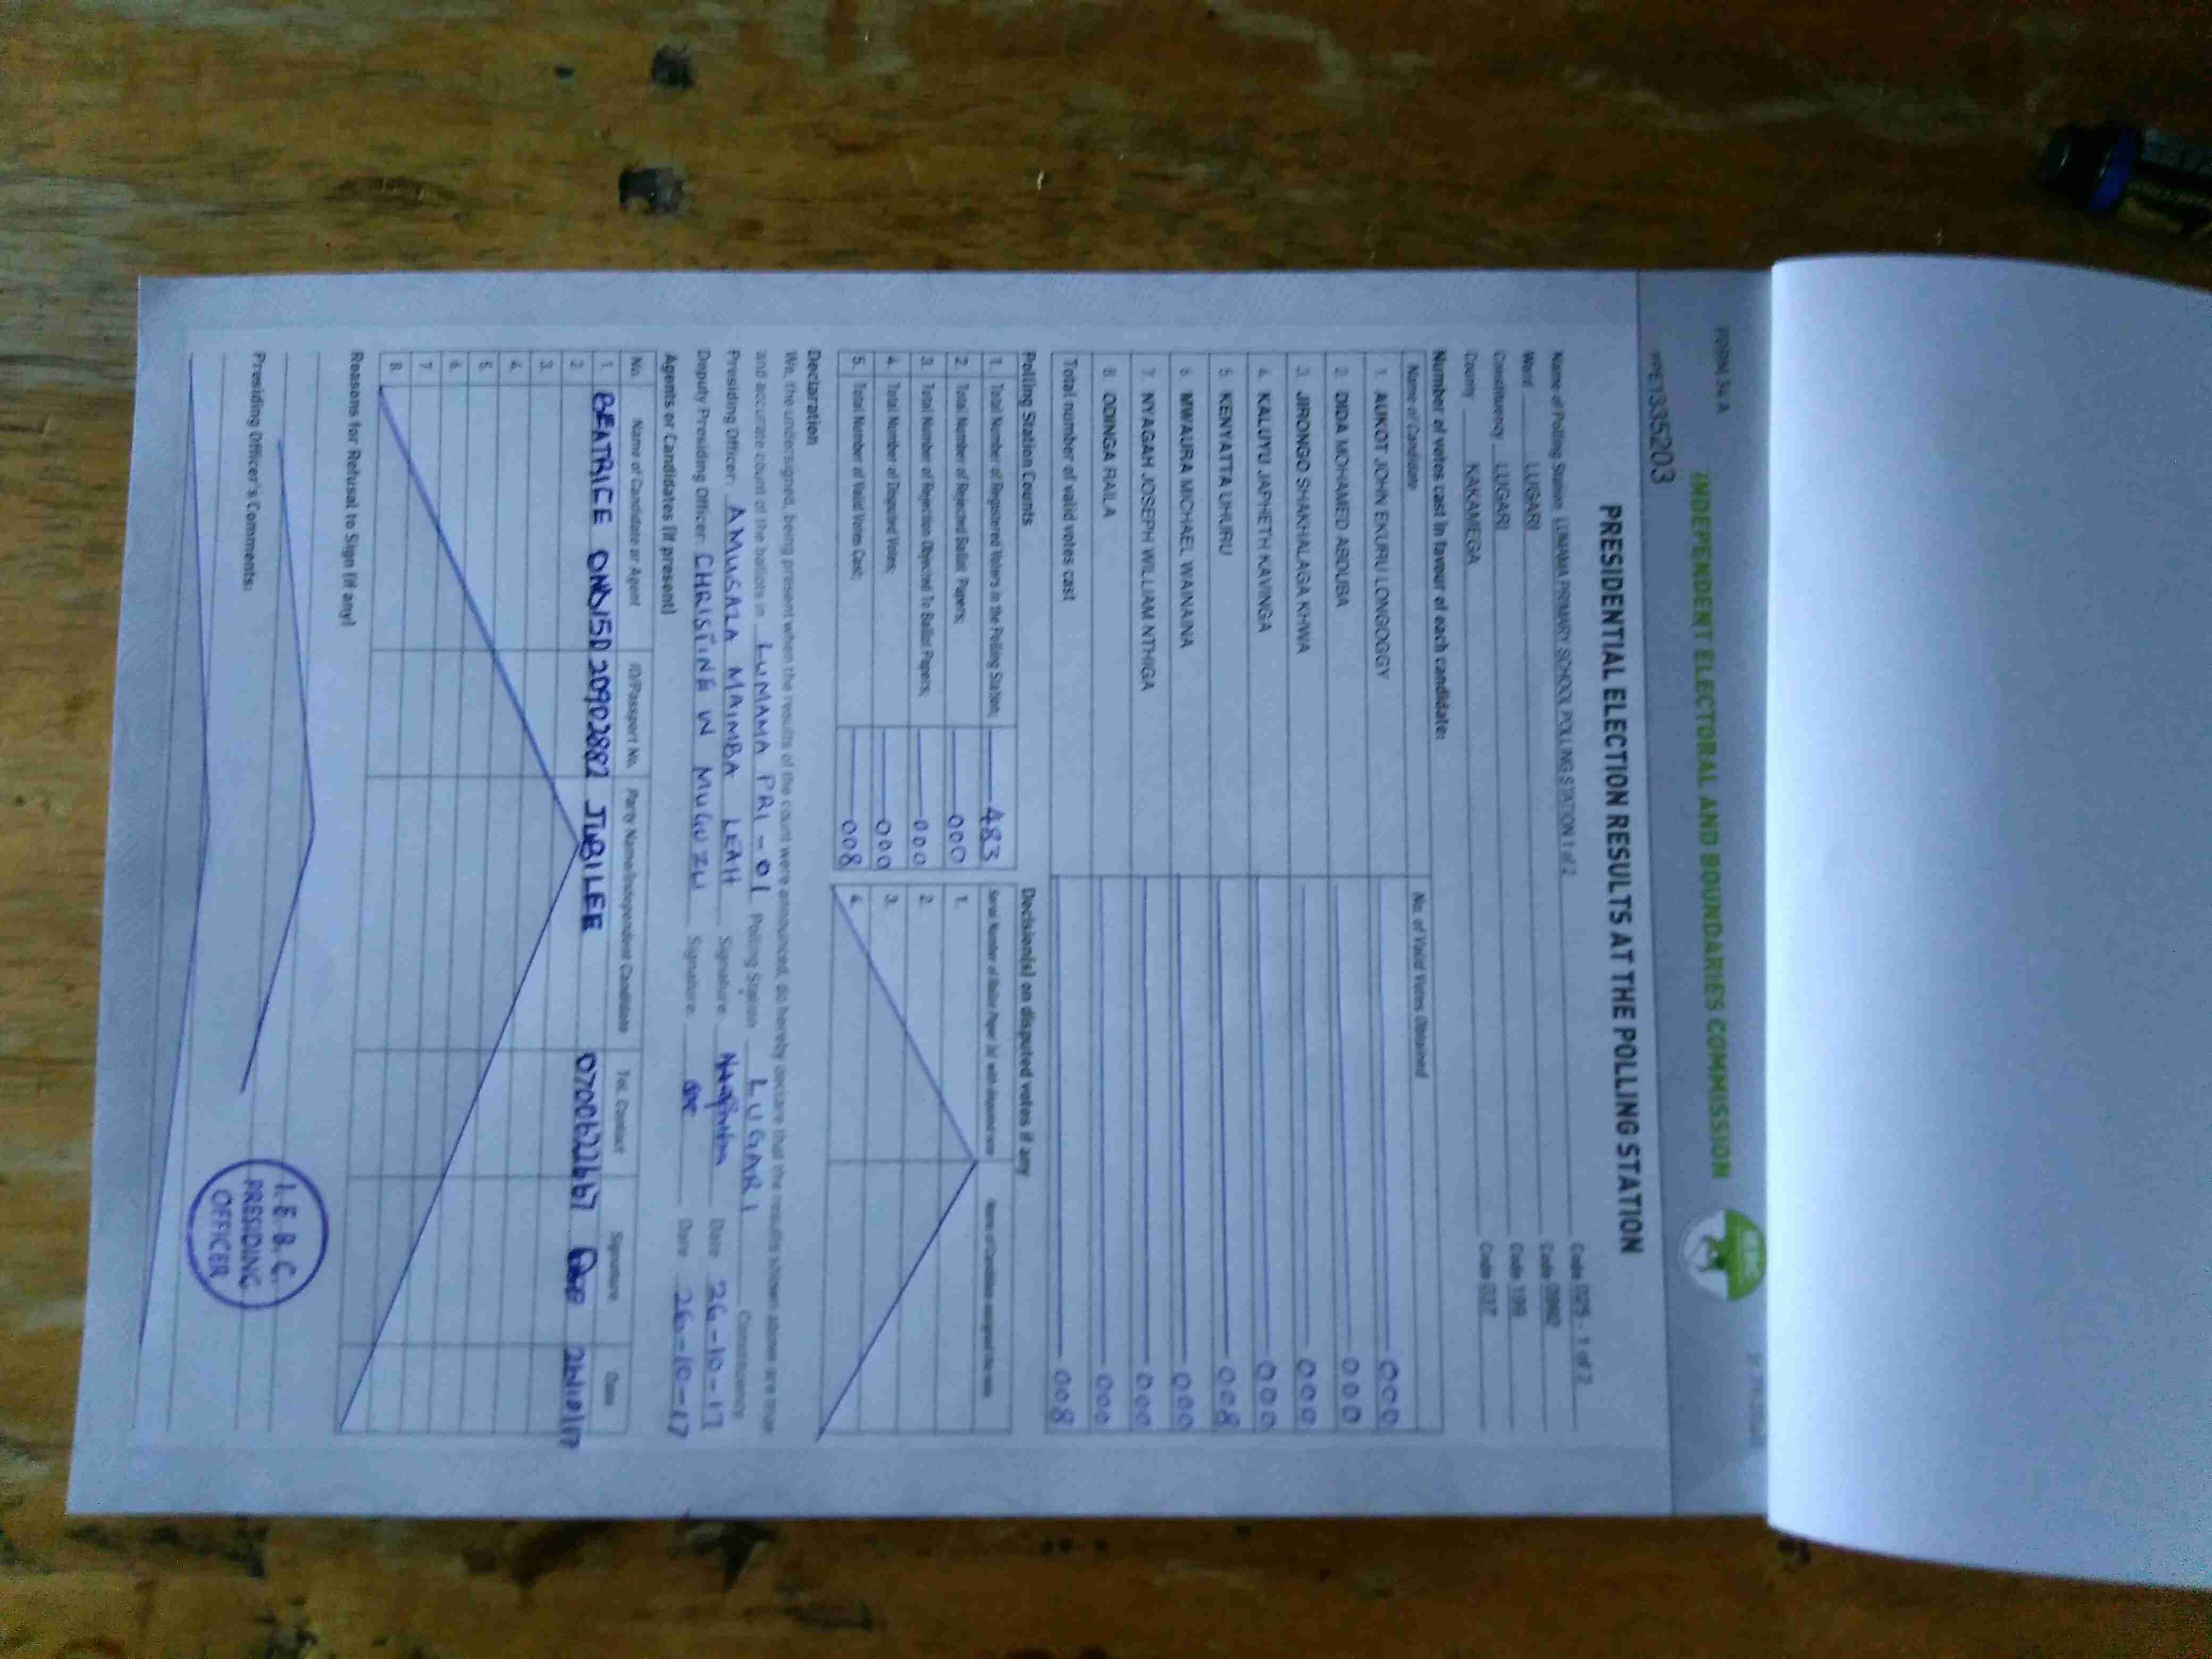 FORM 34 A
INDEPENDENT ELECTORAL AND BOUNDARIES COMMISSION
PRESIDENTIAL ELECTION RESULTS AT THE POLLING STATION
Name of Polling Station LUMAMA PRIMARY SCHOOL POLLING STATION 1 of 2 Code 025 - 1 of 2
Ward LUGARI Code
Constituency LUGARI Code 199
County KAKAMEGA Code 037
Number of votes cast in favour of each candidate:
Name of Candidate No. of Valid Votes Obtained
1. AUKOT JOHN EKURU LONGOGGY 000
2. DIDA MOHAMED ABDUBA 000
3. JIRONGO SHAKHALAGA KHWA 000
4. KALUYU JAPHETH KAVINGA 000
5. KENYATTA UHURU 008
6. MWAURA MICHAEL WAINAINA 000
7. NYAGAH JOSEPH WILLIAM NTHIGA 000
8. ODINGA RAILA 000
Total number of valid votes cast 008
Polling Station Counts Decision(s) on disputed votes if any
1. Total Number of Registered Voters in the Polling Station; 483
2. Total Number of Rejected Ballot Papers; 000
3. Total Number of Rejection Objected To Ballot Papers; 000
4. Total Number of Disputed Votes; 000
5. Total Number of Valid Votes Cast; 008
Serial Number of Ballot Paper (s) with disputed vote Name of Candidate assigned the vote
1.
2.
3.
4.
Declaration
We, the undersigned, being present when the results of the count were announced, do hereby declare that the results shown above are true
and accurate count of the ballots in LUMAMA PRI - 01 Polling Station LUGARI Constituency
Presiding Officer: AMUSALA MAIMBA LEAH Signature Date 26-10-17
Deputy Presiding Officer: CHRISTINE W MUGUZU Signature Date 26-10-17
Agents or Candidates (if present)
No. Name of Candidate or Agent ID/Passport No. Party Name/Independent Candidate Tel. Contact Signature Date
1. BEATRICE 20902882 JUBILEE 0700622667
2.
3.
4.
5.
6.
7.
8.
Reasons for Refusal to Sign (if any)
Presiding Officer's Comments:
I.E.B.C.
PRESIDING
OFFICER